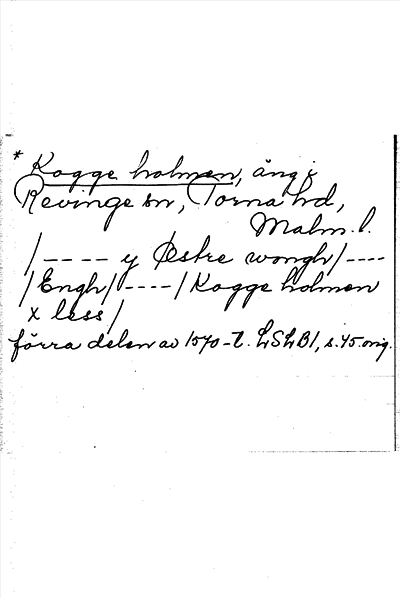 * Kogge holmen, äng i
Revinge sn, Torna hd,
Malm. l.
/---- y Østre wongh/----
/Engh/----/Kogge holmen
x less/
förra delen av 1570-t. LSLB1, s. 45 orig.